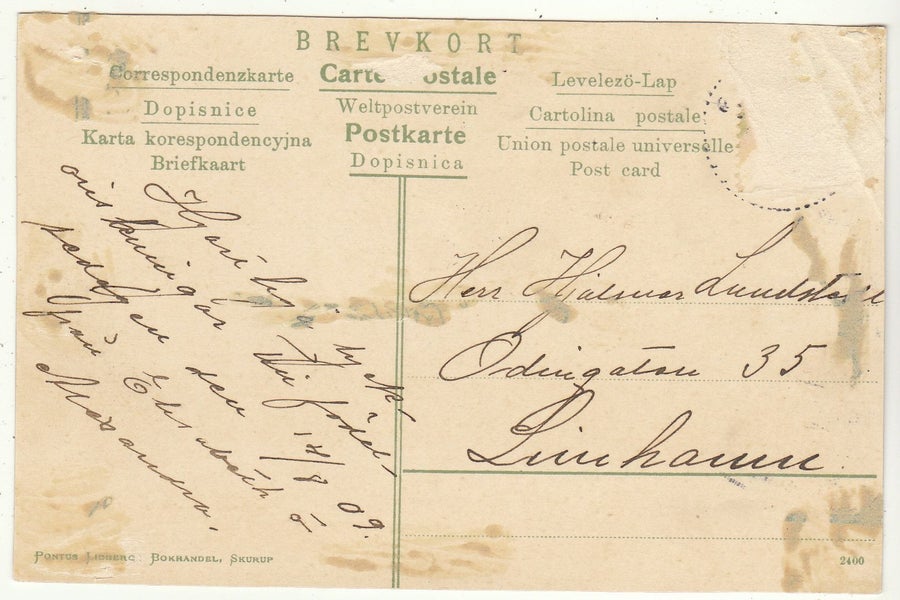 BREVKORT
Correspondenzkarte
Dopisnice
Karta korespondencyjna
Briefkaart
Carte ostale
Weltpostverein
Postkarte
Dopisnica
Levelezö-Lap
Cartolina postale
Union postale universelle
Post card
Hjertlig
önskningar födel-
sedagen den 18/8 09.
från Elisabeth o
Alexandra.
Herr Hjalmar Lundstedt
Odingatan 35
Limhamn.
Pontus Lidberg Bokhandel, Skurup
2400